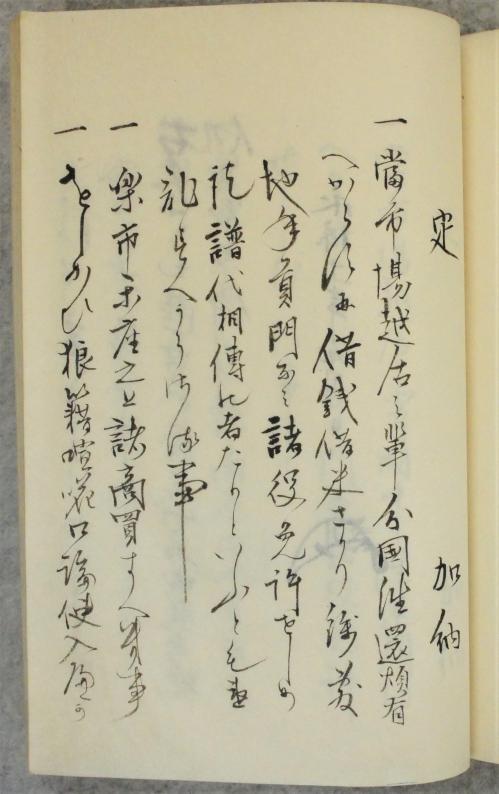 定 加納
一 當市場越居之輩分国往還煩有
へからす并借銭借米さかり銭敷
地年貢門なミ諸役免許せしめ
訖譜代相傳の者たりといふとも違
乱すへからさる事
一 楽市楽座之上諸商買すへき事
一 をしかひ狼籍喧嘩口論使入へか